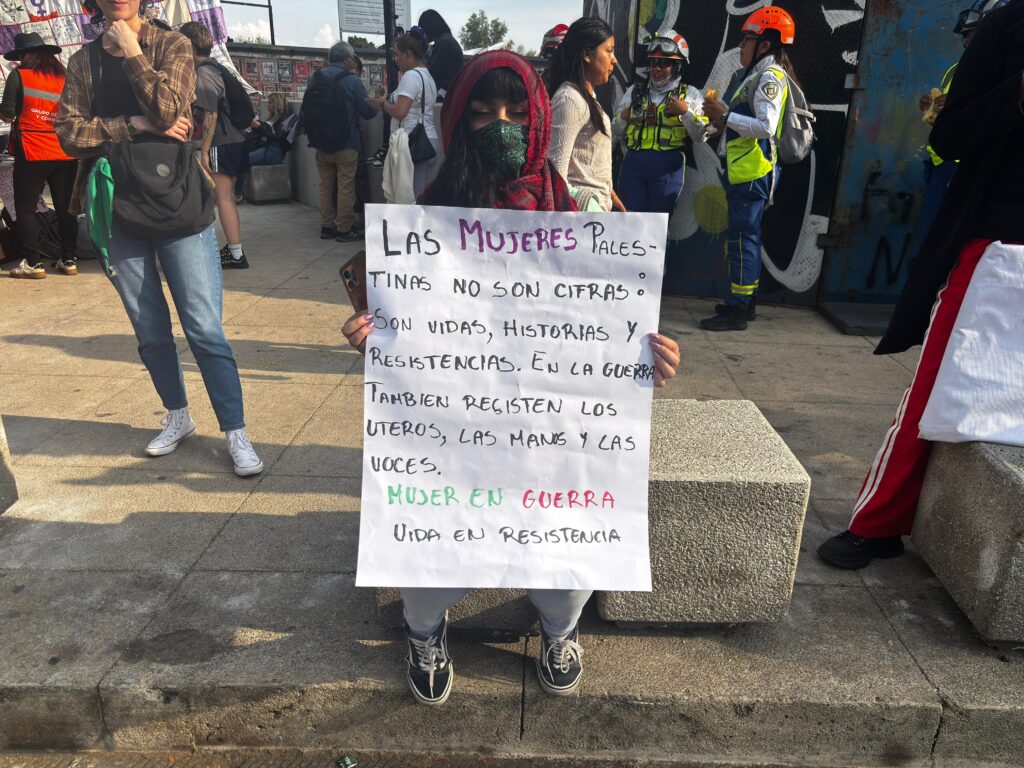 LAS MUJERES PALES-
TINAS NO SON CIFRAS:
SON VIDAS, HISTORIAS Y
RESISTENCIAS. EN LA GUERRA
TAMBIEN RESISTEN LOS
UTEROS, LAS MANOS Y LAS
VOCES.
MUJER EN GUERRA
VIDA EN RESISTENCIA